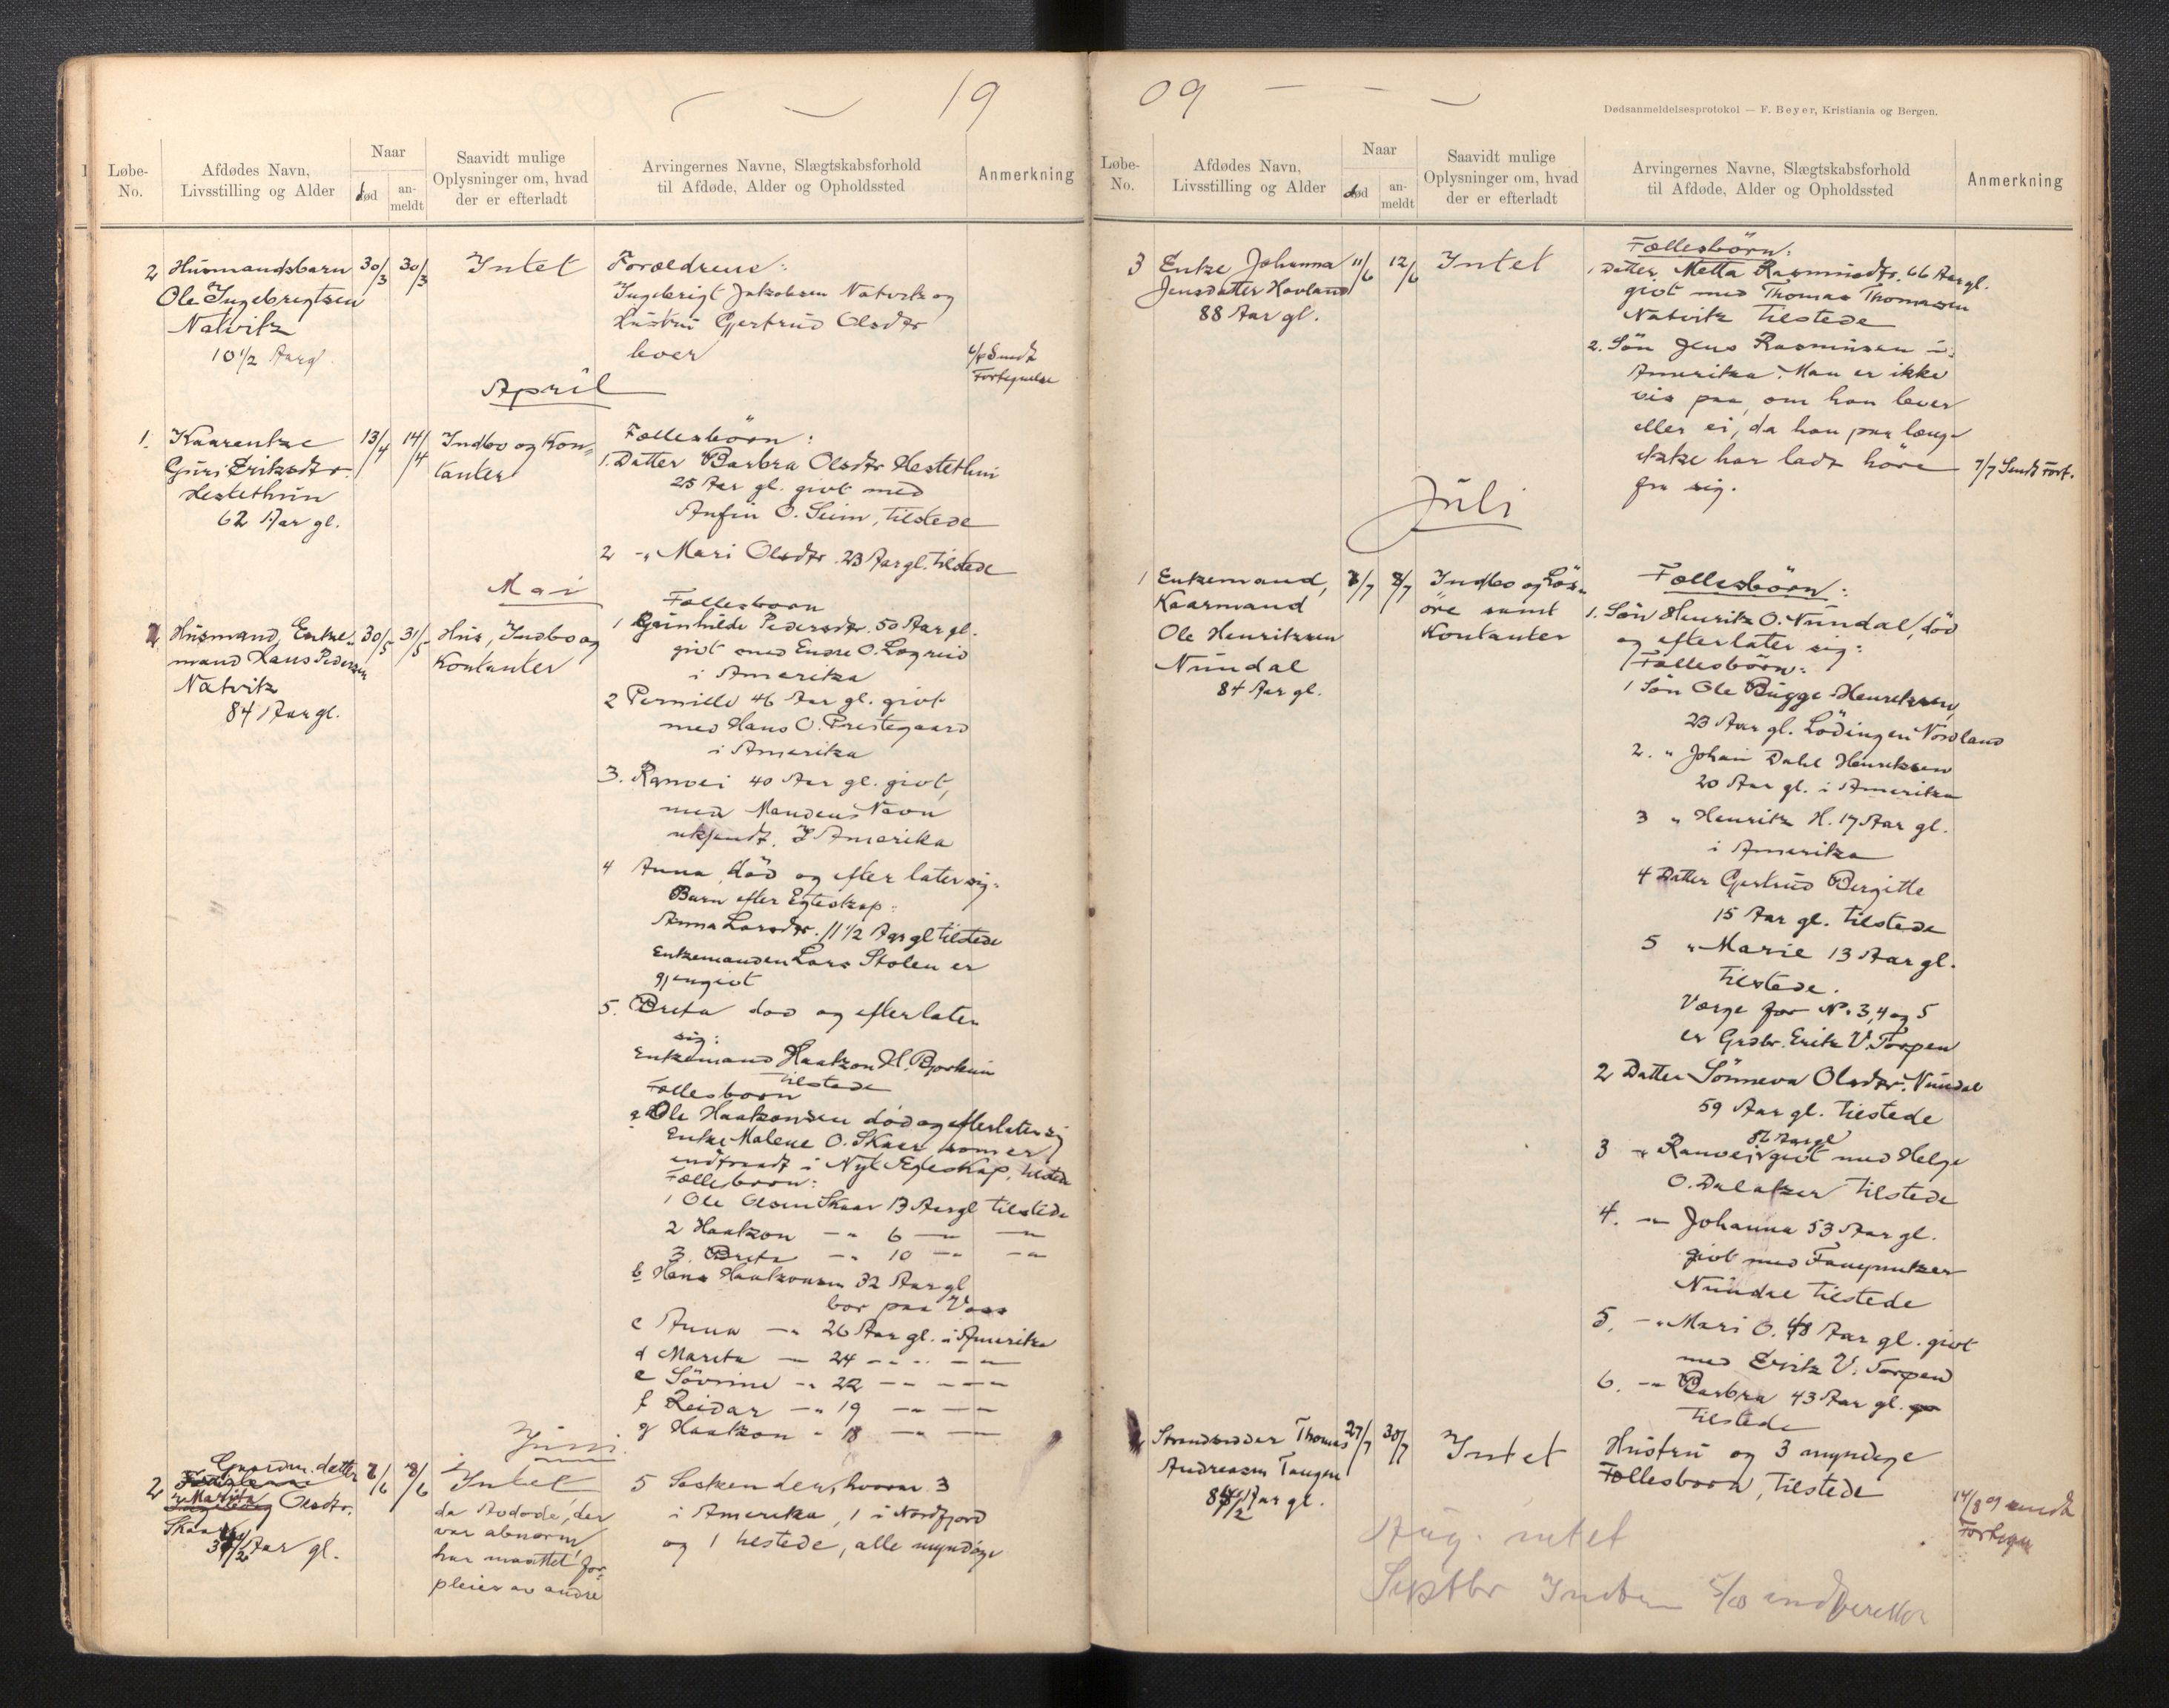 19
Løbe-No.
Afdødes Navn, Livsstilling og Alder
Naar
død
an-meldt
Saavidt mulige Oplysninger om, hvad der er efterladt
Arvingernes Navne, Slægtskabsforhold til Afdøde, Alder og Opholdssted
Anmerkning
2 Husmandsbarn
Ole Ingebrigtsen
Natvik
10 1/2 Aargl.
30/3
30/3
Intet
Forældrene:
Ingebrigt Jakobsen Natvik og
Hustru Gjertrud Olsdtr
lever
Sendt
Fortegnelse
April
1. Kaarenke
Guri Eriksdtr.
Hestethun
62 Aar gl.
13/4
14/4
Indbo og Kon-
tanter
Fællesbörn:
1. Datter Barbra Olsdtr Hestethun
25 Aar gl. givt med
Anfin O. Seim, tilstede
2 -"- Mari Olsdtr. 23 Aar gl. tilstede
Mai
Husmand, Enke-
mand Hans Pedersen
Natvik
84 Aar gl.
30/5
31/5
Hus, Indbo og
Kontanter
Fællesborn
1 Gunhilde Pedersdtr. 50 Aar gl.
givt med Endre O. Lægreid
i Amerika
2 Pernille 46 Aar gl. givt
med Hans O. Prestegaard
i Amerika
3. Ranvei 40 Aar gl. givt,
med Mandens Navn
ukjendt. I Amerika
4 Anna, död og efterlater sig:
Barn efter Egteskap:
Anna Larsdtr. 11 1/2 Aar gl tilstede
Enkemanden Lars Stolen er
gjengivt
5. Brita död og efterlater
sig:
Enkemand Haakon H. Bjorkum
tilstede
Fællesborn
a Ole Haakonsen död og efterlater sig
Enke Malene O. Skaar som er
indtraadt i Nyt Egteskap, tilstede
Fællesborn:
1 Ole Olsen Skaar 13 Aar gl tilstede
2 Haakon -"- 6 -"- -"-
3. Brita -"- 10 -"- -"-
b Hans Haakonsen 32 Aar gl
bor paa Voss
c Anna -"- 26 Aar gl. i Amerika
d Marita -"- 24 -"- -"-
e Sövrine -"- 22 -"- -"-
f Reidar -"- 19 -"- -"-
g Haakon " 18 -"- -"-
Juni
2 Gaardm. datter
Marita Olsdtr.
Skaar
Aar gl.
7/6
8/6
Intet
da Avdøde, der
var abnorm,
har maattet for-
pleies av andre
5 Søskender, hvorav 3
i Amerika, 1 i Nordfjord
og 1 tilstede, alle myndige
09
Dødsanmeldelsesprotokol — F. Beyer, Kristiania og Bergen.
Løbe-No.
Afdødes Navn, Livsstilling og Alder
Naar
død
an-meldt
Saavidt mulige Oplysninger om, hvad der er efterladt
Arvingernes Navne, Slægtskabsforhold til Afdøde, Alder og Opholdssted
Anmerkning
3 Enke Johanna
Jensdatter Hovland
88 Aar gl.
11/6
12/6
Intet
Fællesbörn:
1 Datter Metta Rasmusdtr. 66 Aar gl.
givt med Thomas Thomassen
Natvik tilstede
2. Sön Jens Rasmusen i
Amerika. Man er ikke
vis paa, om han lever
eller ei, da han paa længe
ikke har ladt höre
fra sig.
7/7 Sendt Fort.
Juli
1 Enkemand,
Kaarmand
Ole Henriksen
Nundal
84 Aar gl.
7/7
8/7
Indbo og Lös-
öre samt
Kontanter
Fællesbörn:
1. Sön Henrik O. Nundal, död
og efterlater sig:
Fællesbörn:
1 Sön Ole Bugge Henriksen,
23 Aar gl. Lödingen Nordland
2. " Johan Dahl Henriksen
20 Aar gl. i Amerika
3 " Henrik H. 17 Aar gl.
i Amerika
4 Datter Gjertrud Bergitte
15 Aar gl. tilstede
5 " Marie 13 Aar gl.
tilstede.
Værge for No. 3, 4 og 5
er Grdbr. Erik V. Torpen
2 Datter Sönneva Olsdtr. Nundal
59 Aar gl. tilstede
3 -"- Ranvei 56 Aar gl givt med Helge
O. Dalaker tilstede
4. -"- Johanna 53 Aar gl.
givt med
Nundal tilstede
5. -"- Mari O. 48 Aar gl. givt
med Erik V. Torpen
6. -"- Barbra 43 Aar gl.
tilstede
Strandsidder Thomas
Andreasen Tangen
Aar gl.
27/7
30/7
Intet
Hustru og 3 myndige
Fællesborn, tilstede
14/8 09 sendt
Fortegn
Aug. intet
Septbr Intet